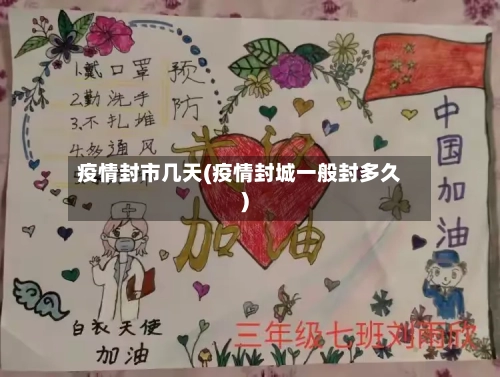 1.戴口罩
2.勤洗手
3.不扎堆
4.多通风
预防
武汉
加油
中国加油
疫情封市几天(疫情封城一般封多久
)
白衣天使
加油
三年级七班刘雨欣